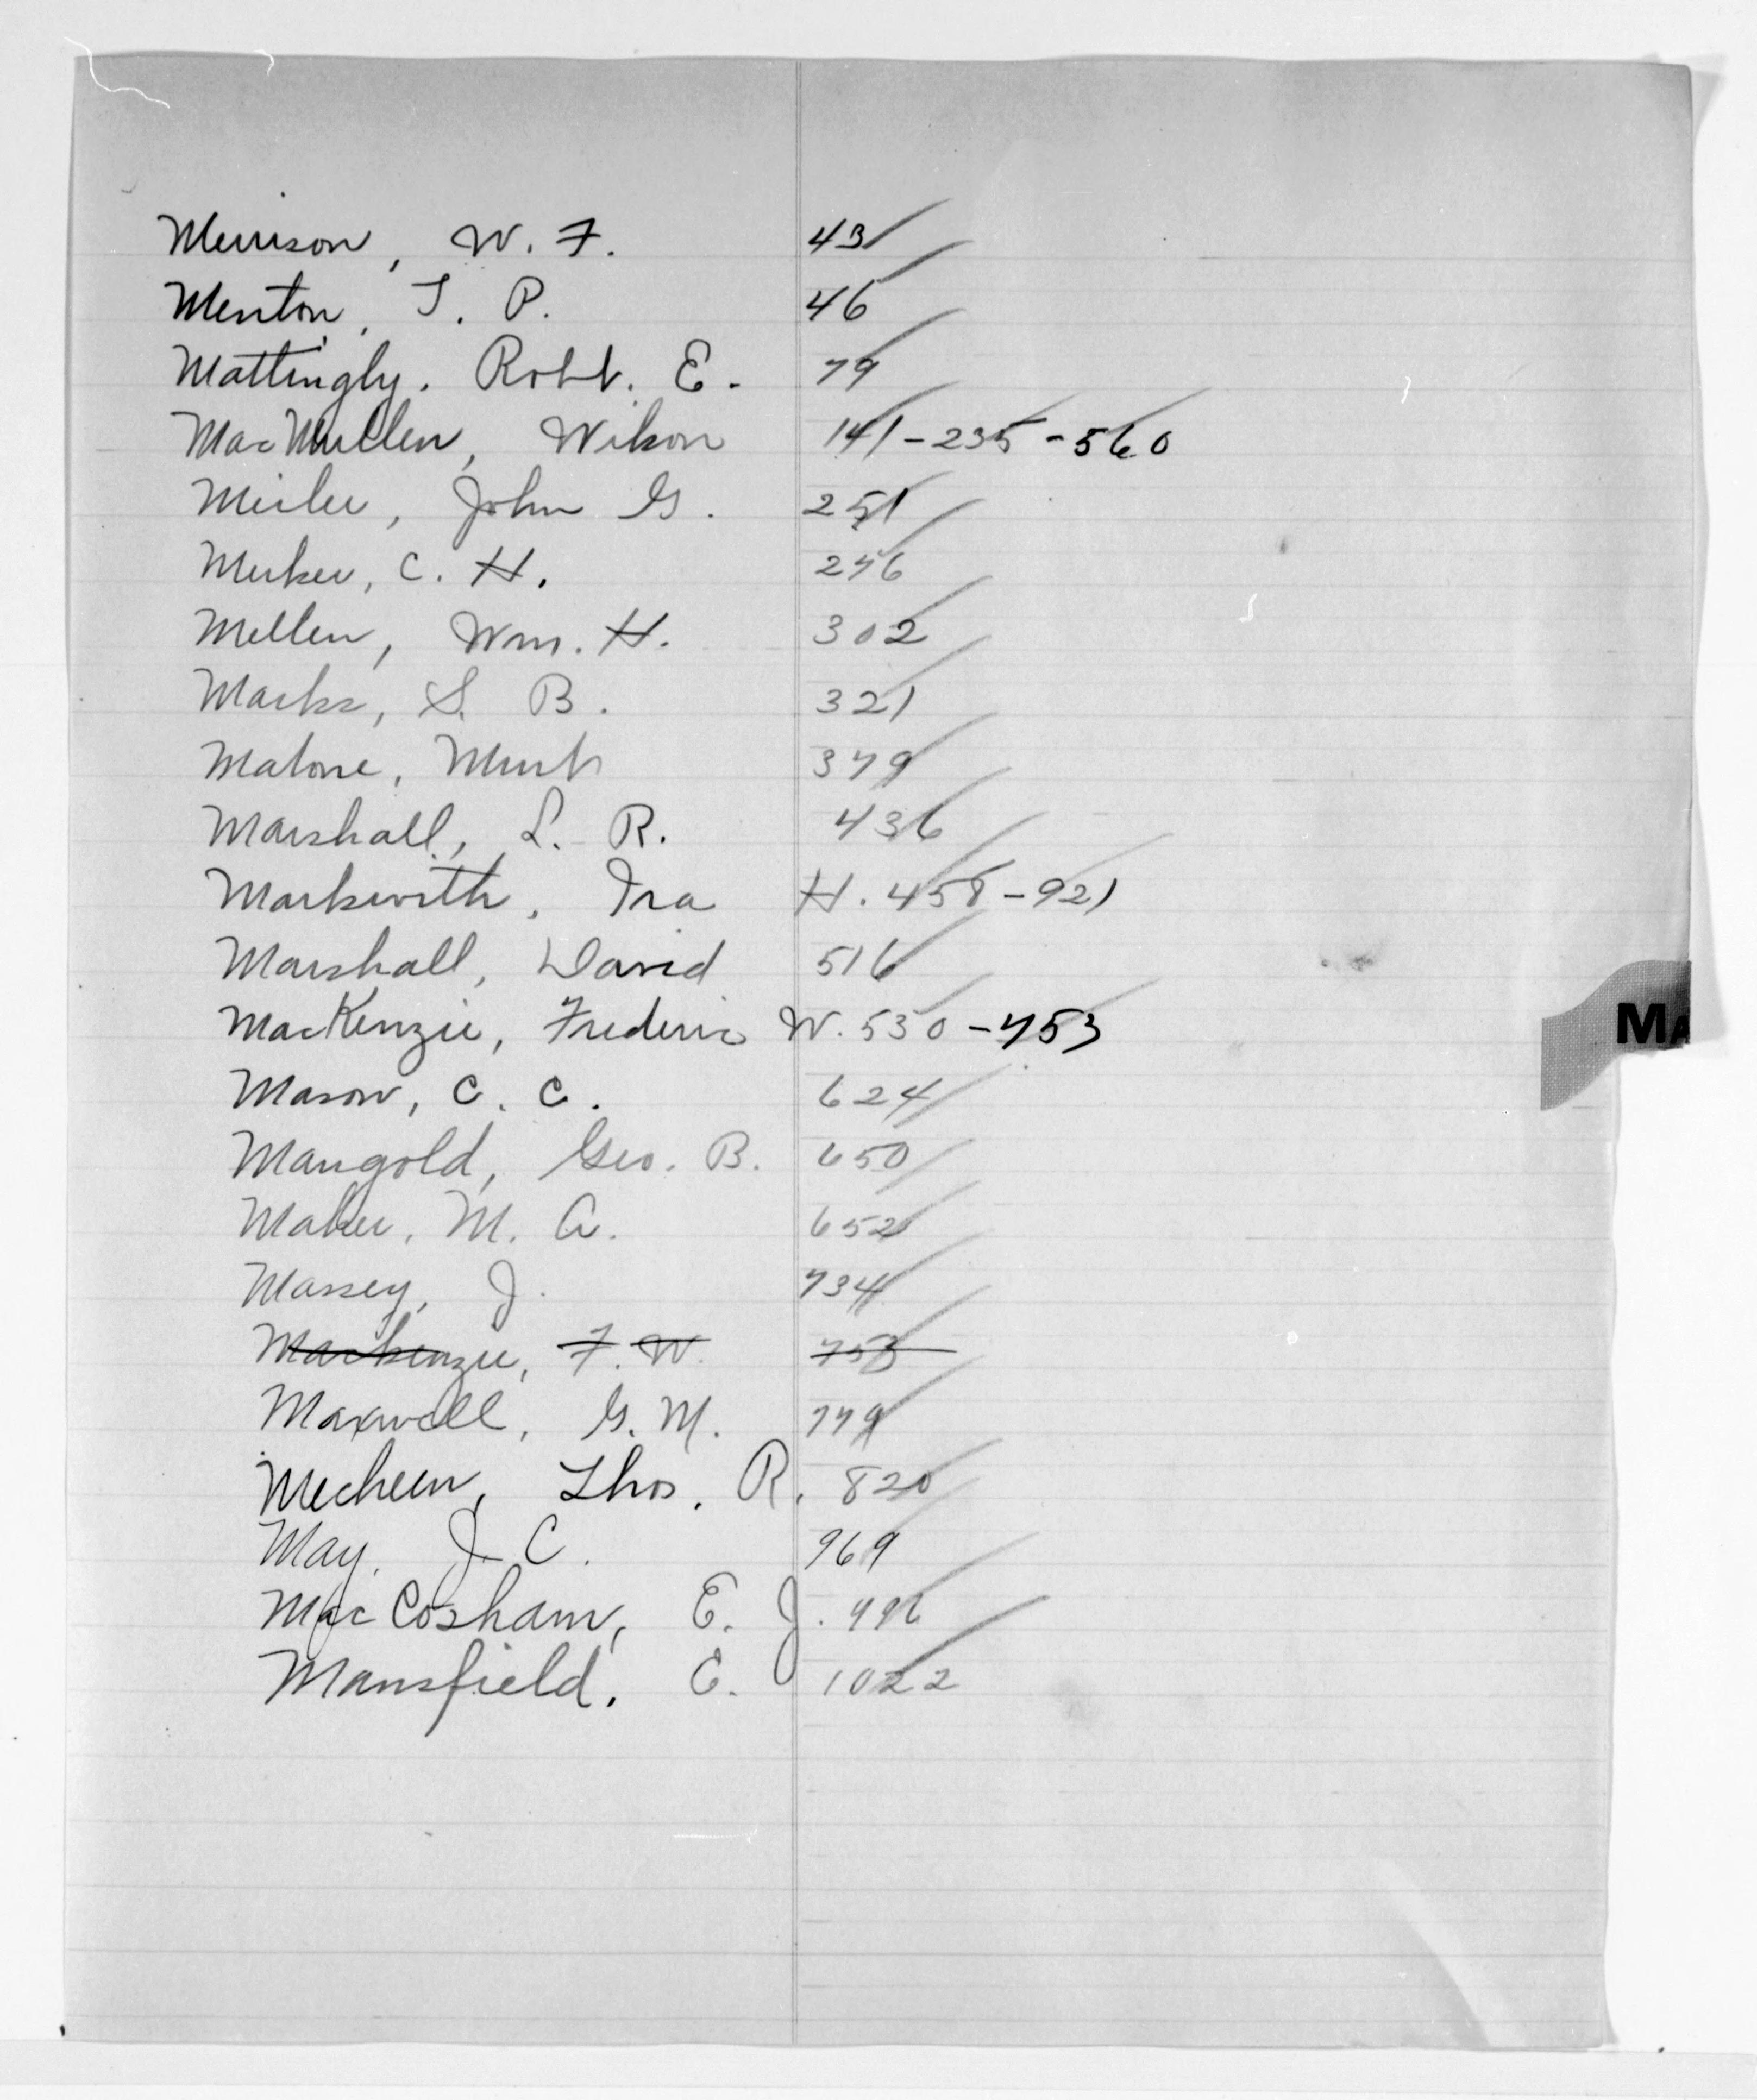 Merrison, W. F. 43
Menton, T. P. 46
Mattingly. Robt. E. 79
MacMullen, Wilson 141-235-560
Meiler, John G. 251
Merker, C. H. 276
Mellen, Wm. H. 302
Marks, S. B. 321
Malone, 379
Marshall, L. R. 436
Markwith, Ira H. 458-921
Marshall, David 516
MacKenzie, Frederic W. 530-753
Mason, C. C. 624
Mangold, Geo. B. 650
Maher, M. A. 652
Massey, J. 734
Mackenzie, F. W. 753
Maxwell, G. M. 779
Mecheen, Thos. R. 820
May, J. C. 969
MacCosham, E. J. 996
Mansfield, E. 1022
MA